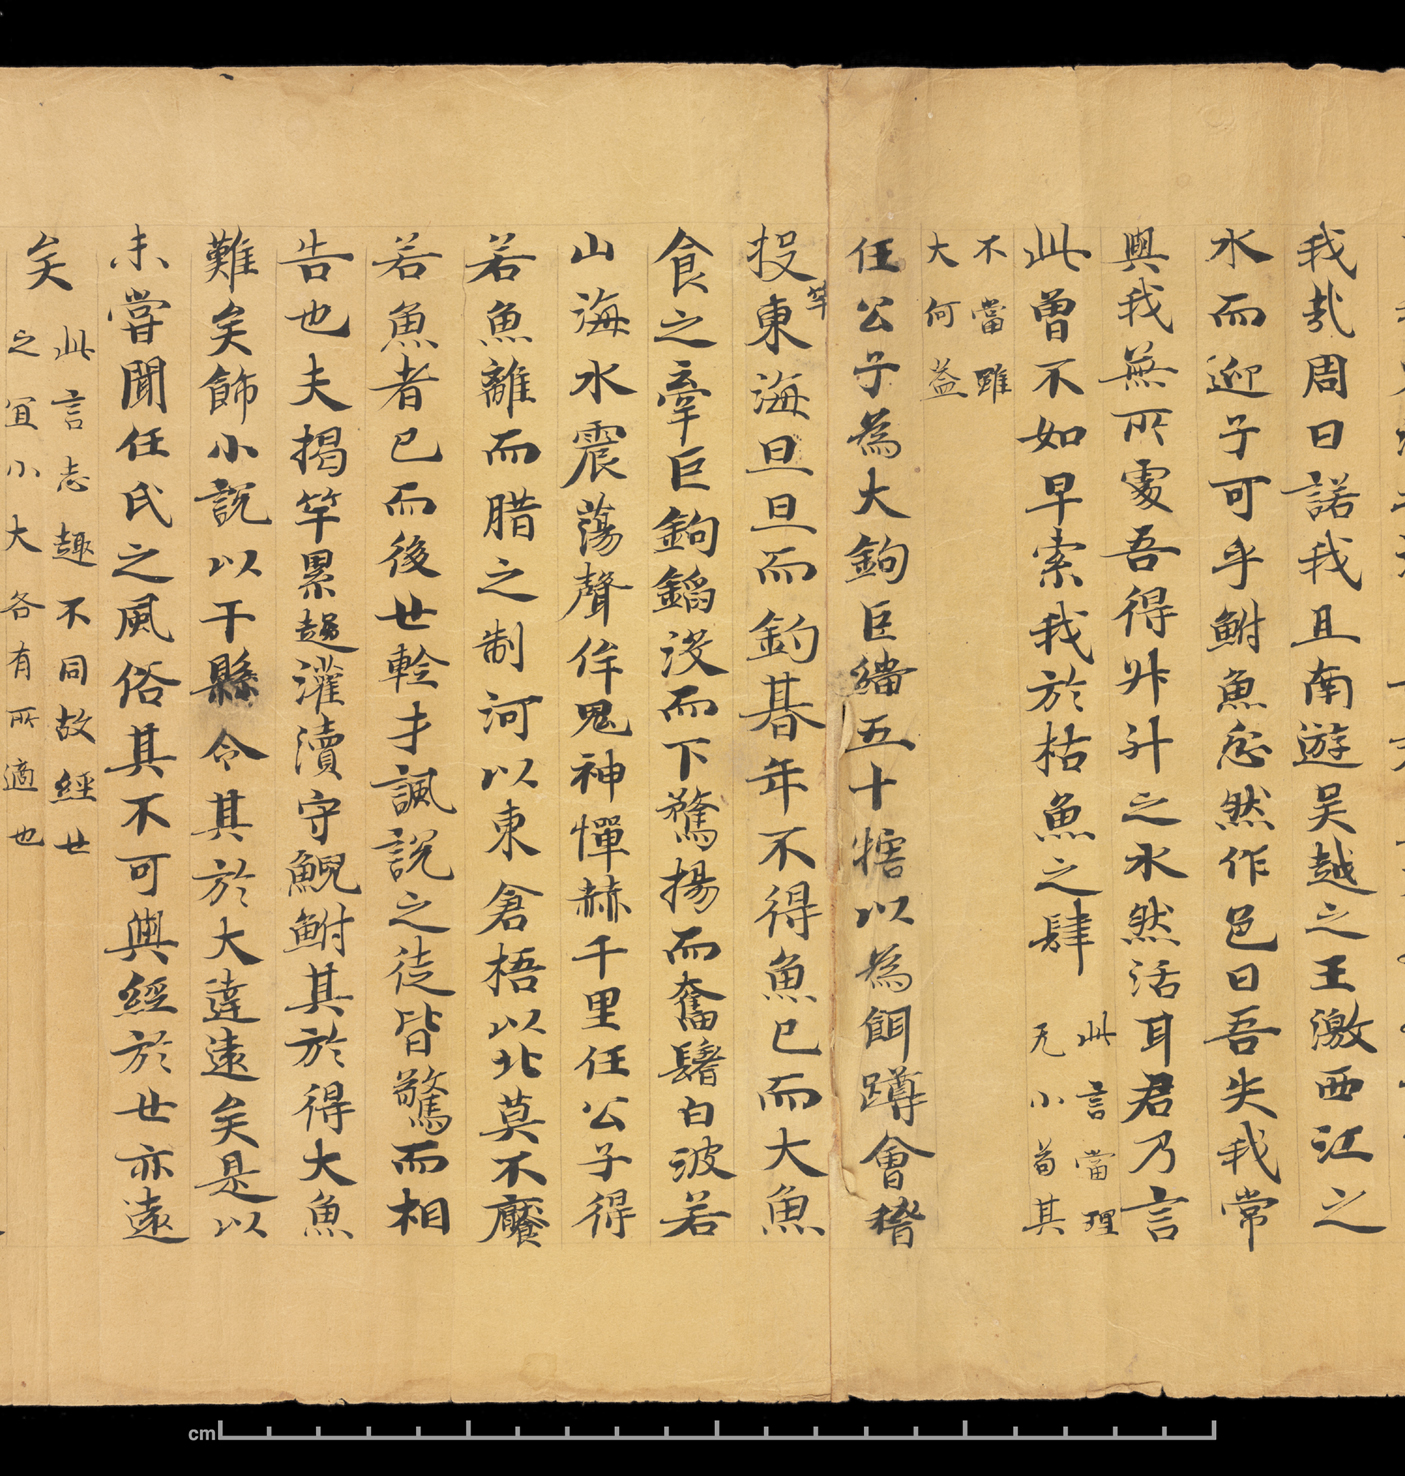 我哉周曰諾我且南遊吴越之王激西江之
水而迎子可乎鮒魚忿然作色曰吾失我常
與我無所處吾得升斗之水然活耳君乃言
此曾不如早索我於枯魚之肆
此言當理
无小苟其
不當雖
大何益
任公子為大鉤巨緇五十犗以為餌蹲會稽
投竿東海旦旦而釣朞年不得魚已而大魚
食之牽巨鉤錎没而下驚揚而奮鬐白波若
山海水震蕩聲侔鬼神憚赫千里任公子得
若魚離而腊之制河以東倉梧以北莫不饜
若魚者已而後世輇才諷説之徒皆驚而相
告也夫揭竿累趨灌瀆守鯢鮒其於得大魚
難矣飾小説以干縣令其於大達遠矣是以
未甞聞任氏之風俗其不可與經於世亦遠
矣
此言志趣不同故經世
之冝小大各有所適也
cm